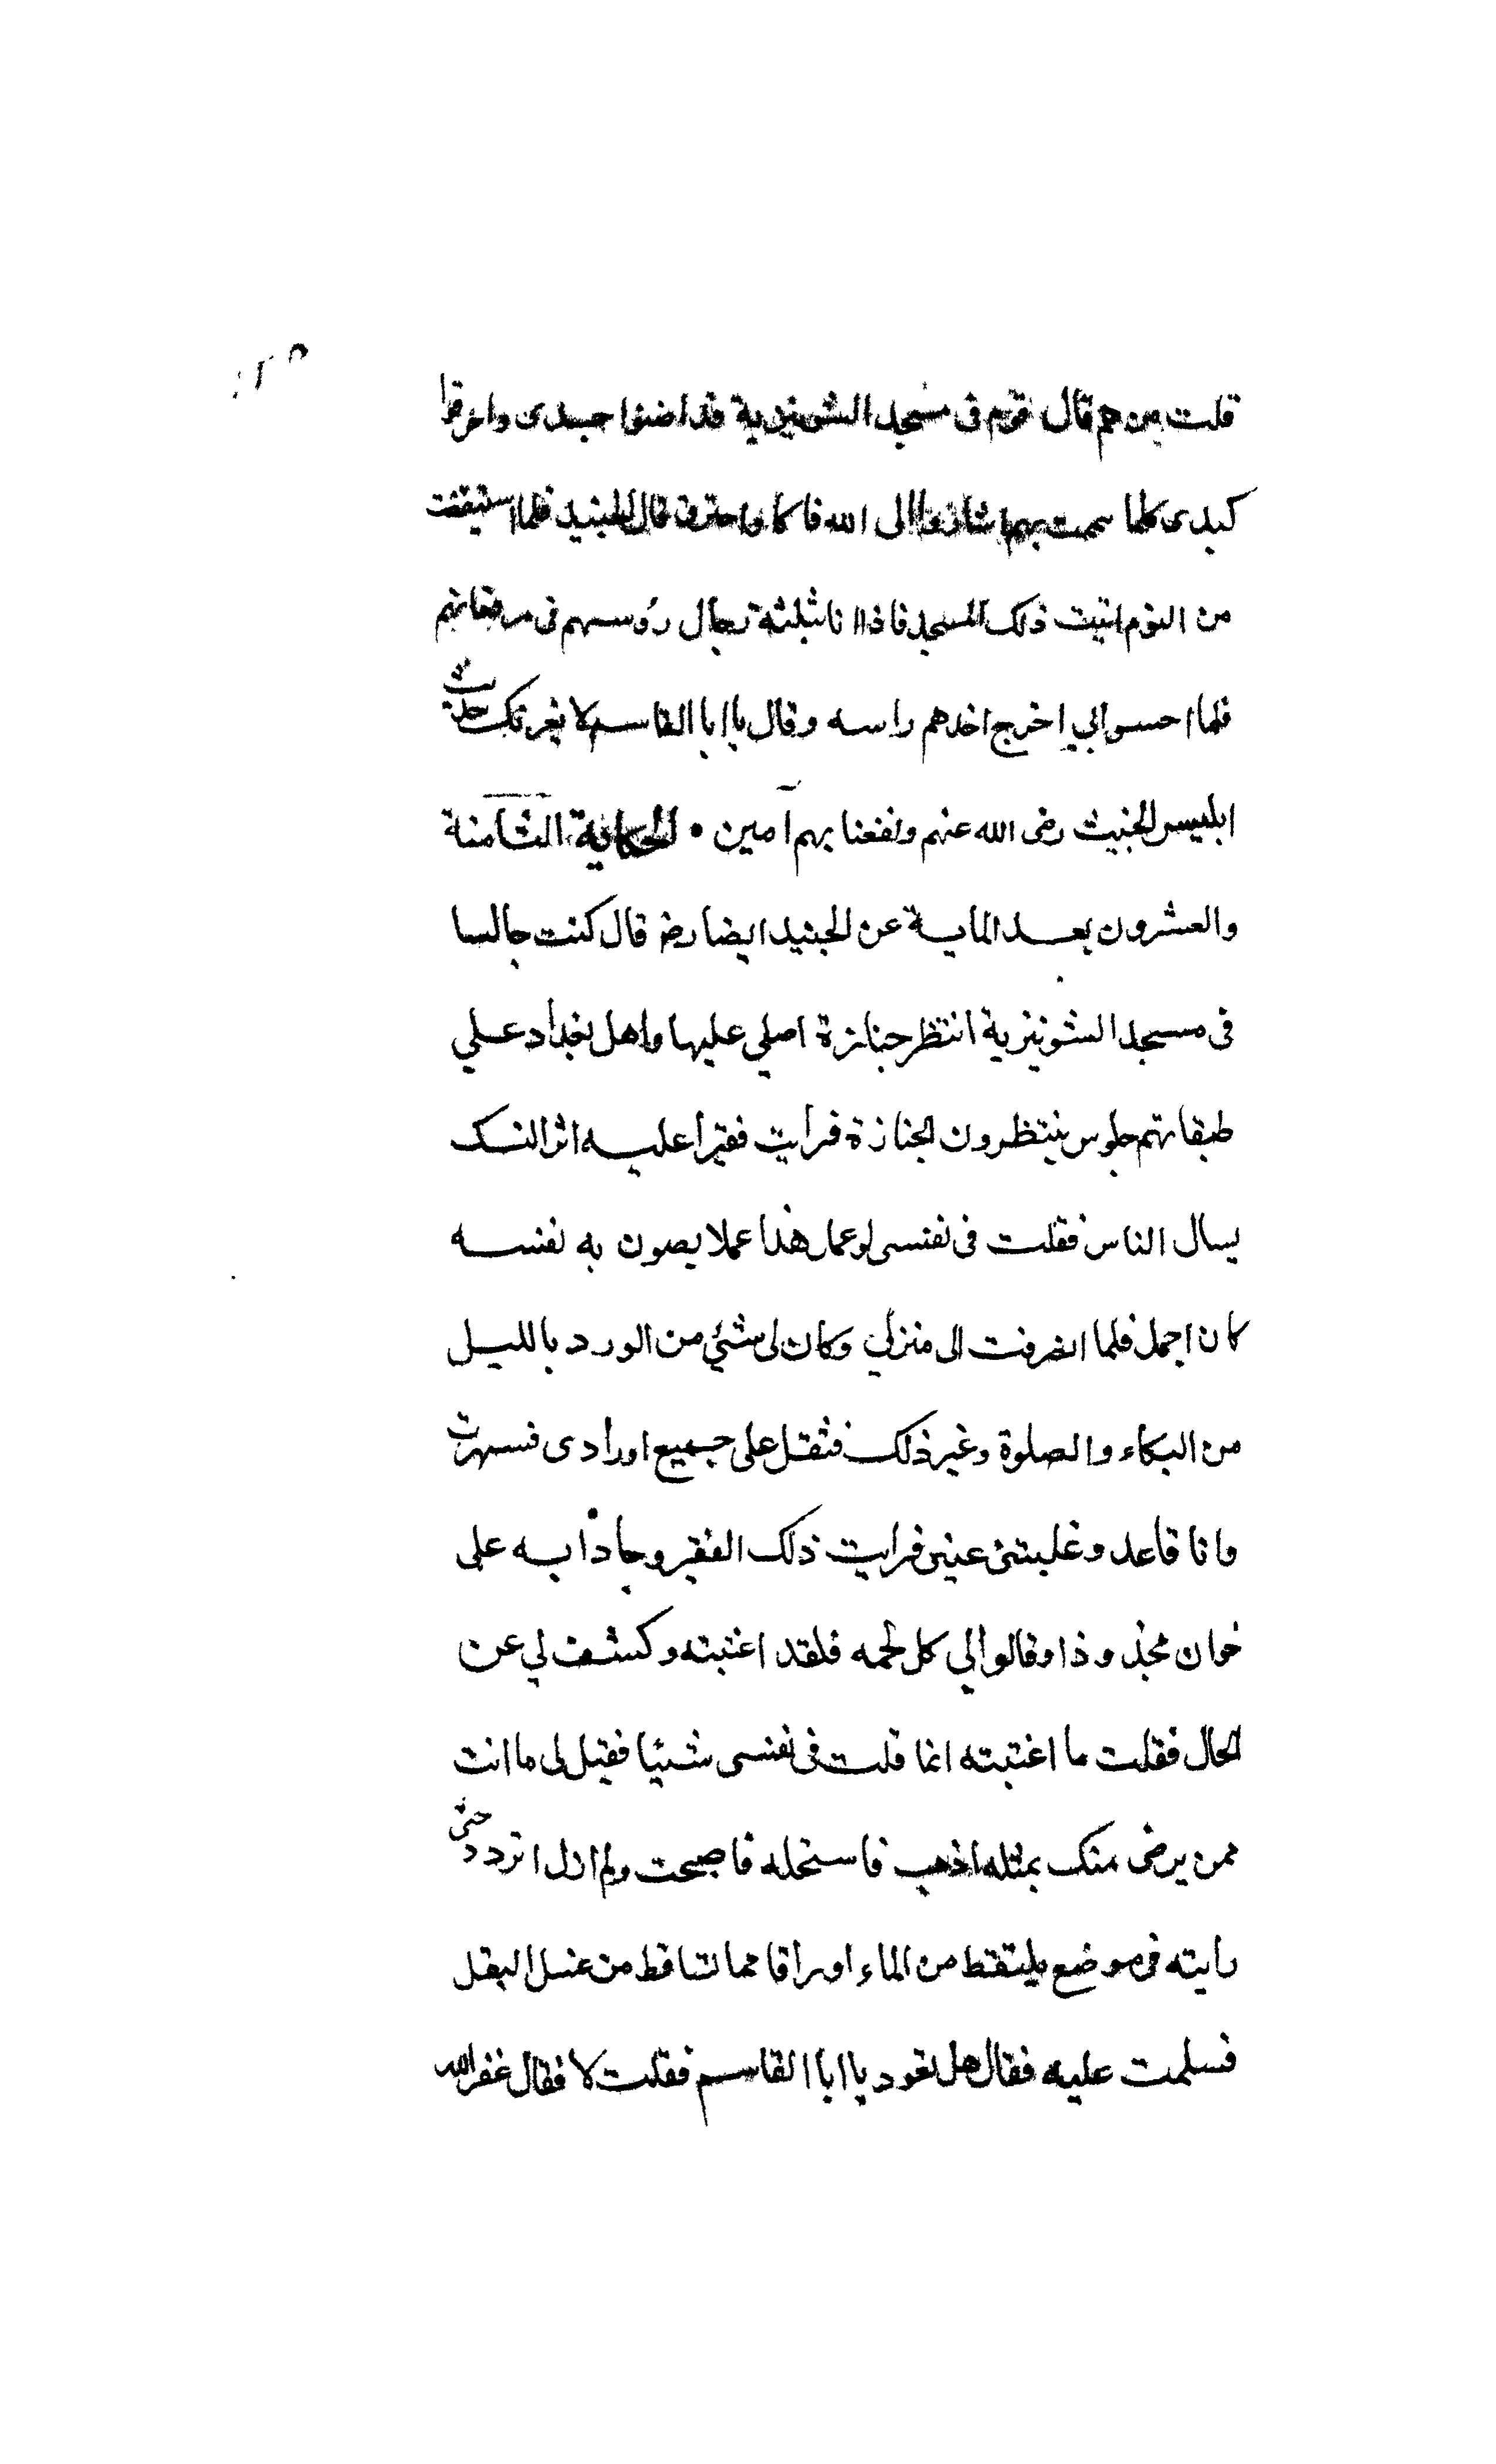 قلت من هم قال قوم فى مسجد الشونيزية قد اضنوا جسدى واحرقوا
كبدى كلما هممت بهم اشاروا الى الله فاكاد احترق قال الجنيد فلما استيقظت
من النوم اتيت ذلك المسجد فاذا انا بثلثة رجال رؤسهم فى مرقعاتهم
فلما احسوا بي اخرج احدهم راسه وقال يا ابا القاسم لا يغرنك حديث
ابليس الخبيث رضى الله عنهم ونفعنا بهم آمين • الحكاية الثامنة
والعشرون بعد الماية عن الجنيد ايضا رضـ قال كنت جالسا
فى مسجد الشونيزية انتظر جنازة اصلي عليها واهل بغداد علي
طبقاتهم جلوس ينتظرون الجنازة فرايت فقيرا عليه اثر النسك
يسال الناس فقلت فى نفسى لو عمل هذا عملا يصون به نفسه
كان اجمل فلما انصرفت الى منزلي وكان لى شئي من الورد بالليل
من البكاء والصلوة وغير ذلك فثقل على جميع اورادى فسهرت
وانا قاعد وغلبتنى عينى فرايت ذلك الفقير وجاؤا به على
خوان ممدود وقالوا لي كل لحمه فلقد اغتبته وكشف لي عن
الحال فقلت ما اغتبته انما قلت فى نفسى شيئا فقيل لى ما انت
ممن يرضى منك بمثله اذهب فاستحله فاصبحت ولم ازل اتردد حتى
رايته فى موضع يلتقط من الماء اوراقا مما تساقط من غسل البقل
فسلمت عليه فقال هل تعود يا ابا القاسم فقلت لا فقال غفر الله